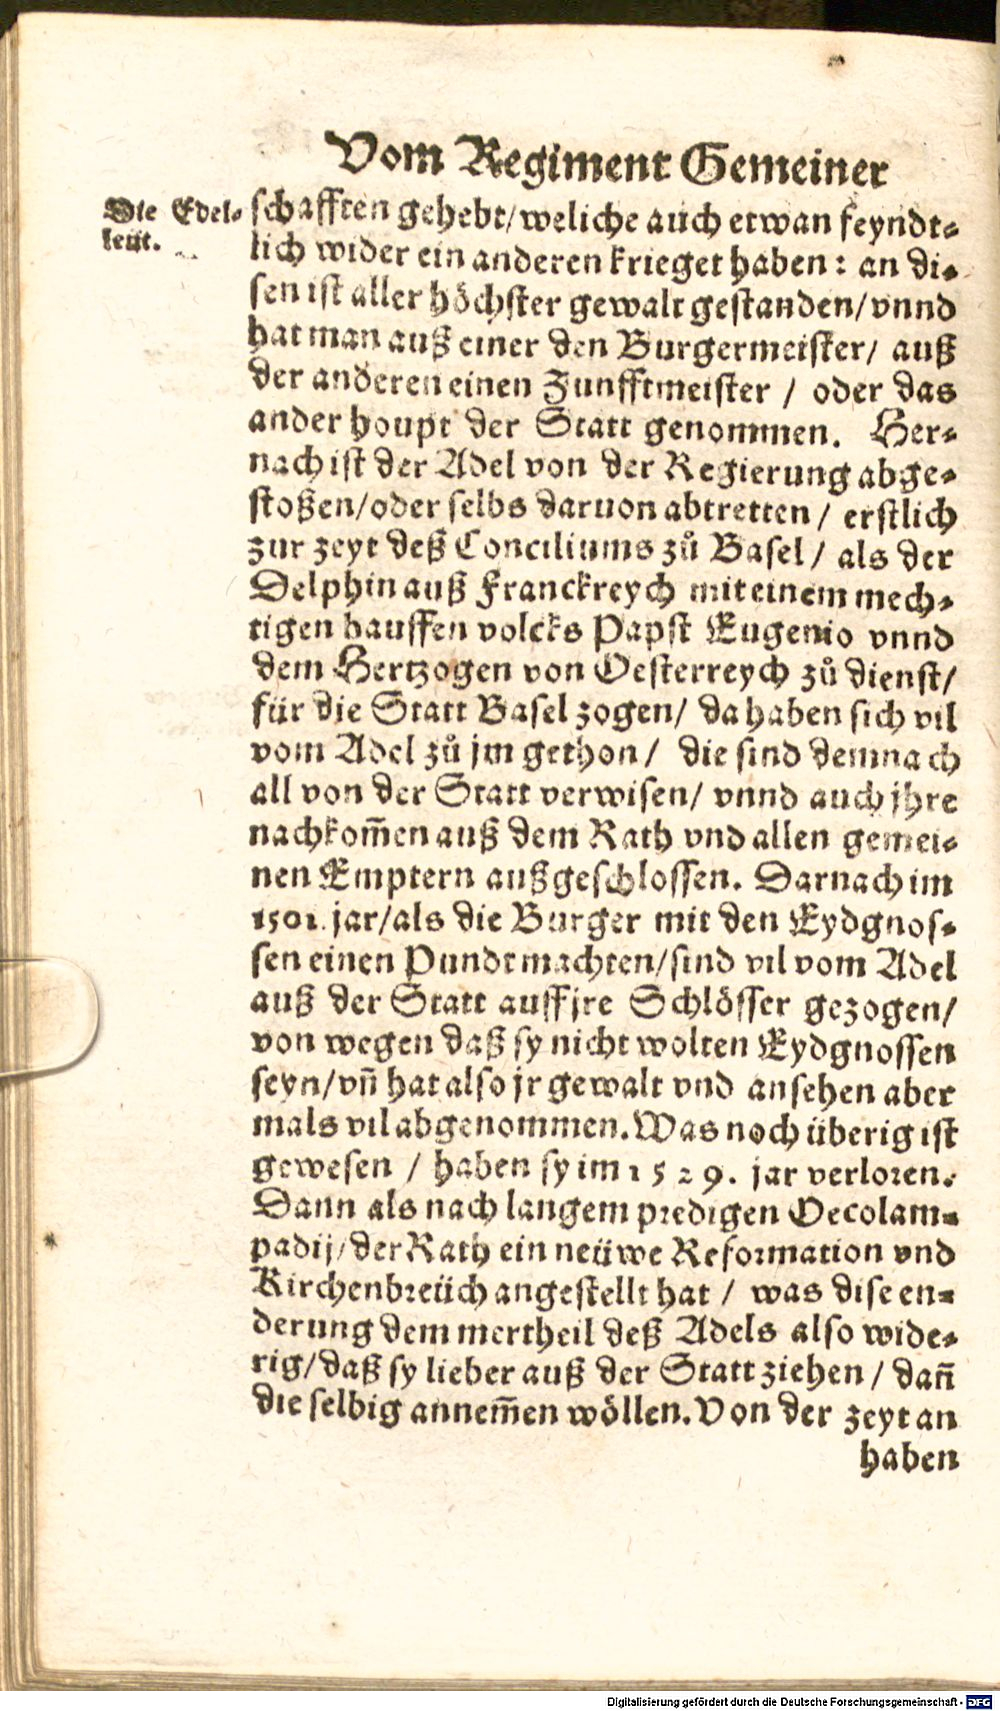 Vom Regiment Gemeiner
Die Edel-
leüt.
schafften gehebt/weliche auch etwan feyndt-
lich wider ein anderen krieget haben: an di-
sen ist aller höchster gewalt gestanden/vnnd
hat man auß einer den Burgermeister/ auß
der anderen einen Zunfftmeister / oder das
ander houpt der Statt genommen. Her-
nach ist der Adel von der Regierung abge-
stoßen/oder selbs daruon abtretten/ erstlich
zur zeyt deß Conciliums zů Basel/ als der
Delphin auß Franckreych mit einem mech-
tigen hauffen volcks Papst Eugenio vnnd
dem Hertzogen von Oesterreych zů dienst/
für die Statt Basel zogen/ da haben sich vil
vom Adel zů jm gethon/ die sind demnach
all von der Statt verwisen/ vnnd auch jhre
nachkom̃en auß dem Rath vnd allen gemei-
nen Emptern außgeschlossen. Darnach im
1501. jar/als die Burger mit den Eydgnos-
sen einen Pundt machten/sind vil vom Adel
auß der Statt auff jre Schlösser gezogen/
von wegen daß sy nicht wolten Eydgnossen
seyn/vñ hat also jr gewalt vnd ansehen aber
mals vil abgenommen. Was noch überig ist
gewesen / haben sy im 1529. jar verloren.
Dann als nach langem predigen Oecolam-
padij/der Rath ein neüwe Reformation vnd
Kirchenbreüch angestellt hat / was dise en-
derung dem mertheil deß Adels also wide-
rig/daß sy lieber auß der Statt ziehen / dañ
die selbig annem̃en wöllen. Von der zeyt an
haben
Digitalisierung gefördert durch die Deutsche Forschungsgemeinschaft - DFG